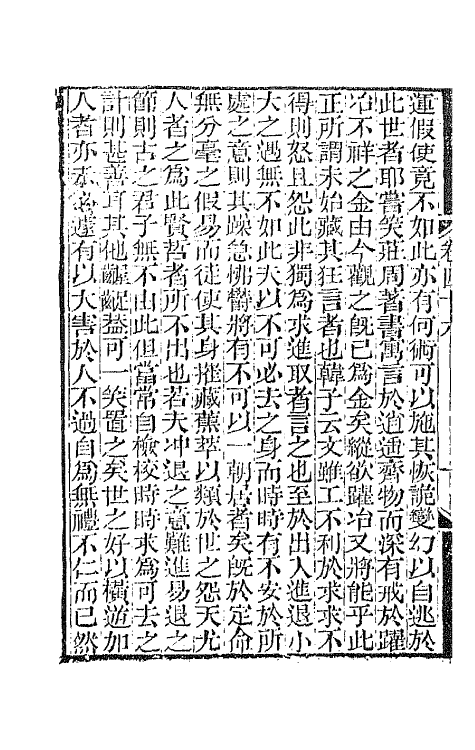 運假使竟不如此亦有何術可以施其恢詭變幻以自逃於
此世者耶嘗笑莊周著書寓言於逍遙齊物而深有戒於躍
冶不祥之金由今觀之旣已爲金矣縱欲躍冶又將能乎此
正所謂未始藏其狂言者也韓子云文雖工不利於求求不
得則怒且怨此非獨爲求進取者言之也至於出入進退小
大之遇無不如此夫以不可必去之身而時時有不安於所
處之意則其躁急怫鬱將有不可以一朝居者矣旣於定命
無分毫之假易而徒使其身摧藏薰萃以類於世之怨天尤
人者之爲此賢哲者所不出也若夫冲退之意難進易退之
節則古之君子無不由此但當常自檢校時時求爲可去之
計則甚善耳其他齷齪葢可一笑置之矣世之好以橫逆加
人者亦未必遽有以大害於人不過自爲無禮不仁而已然
卷四十六